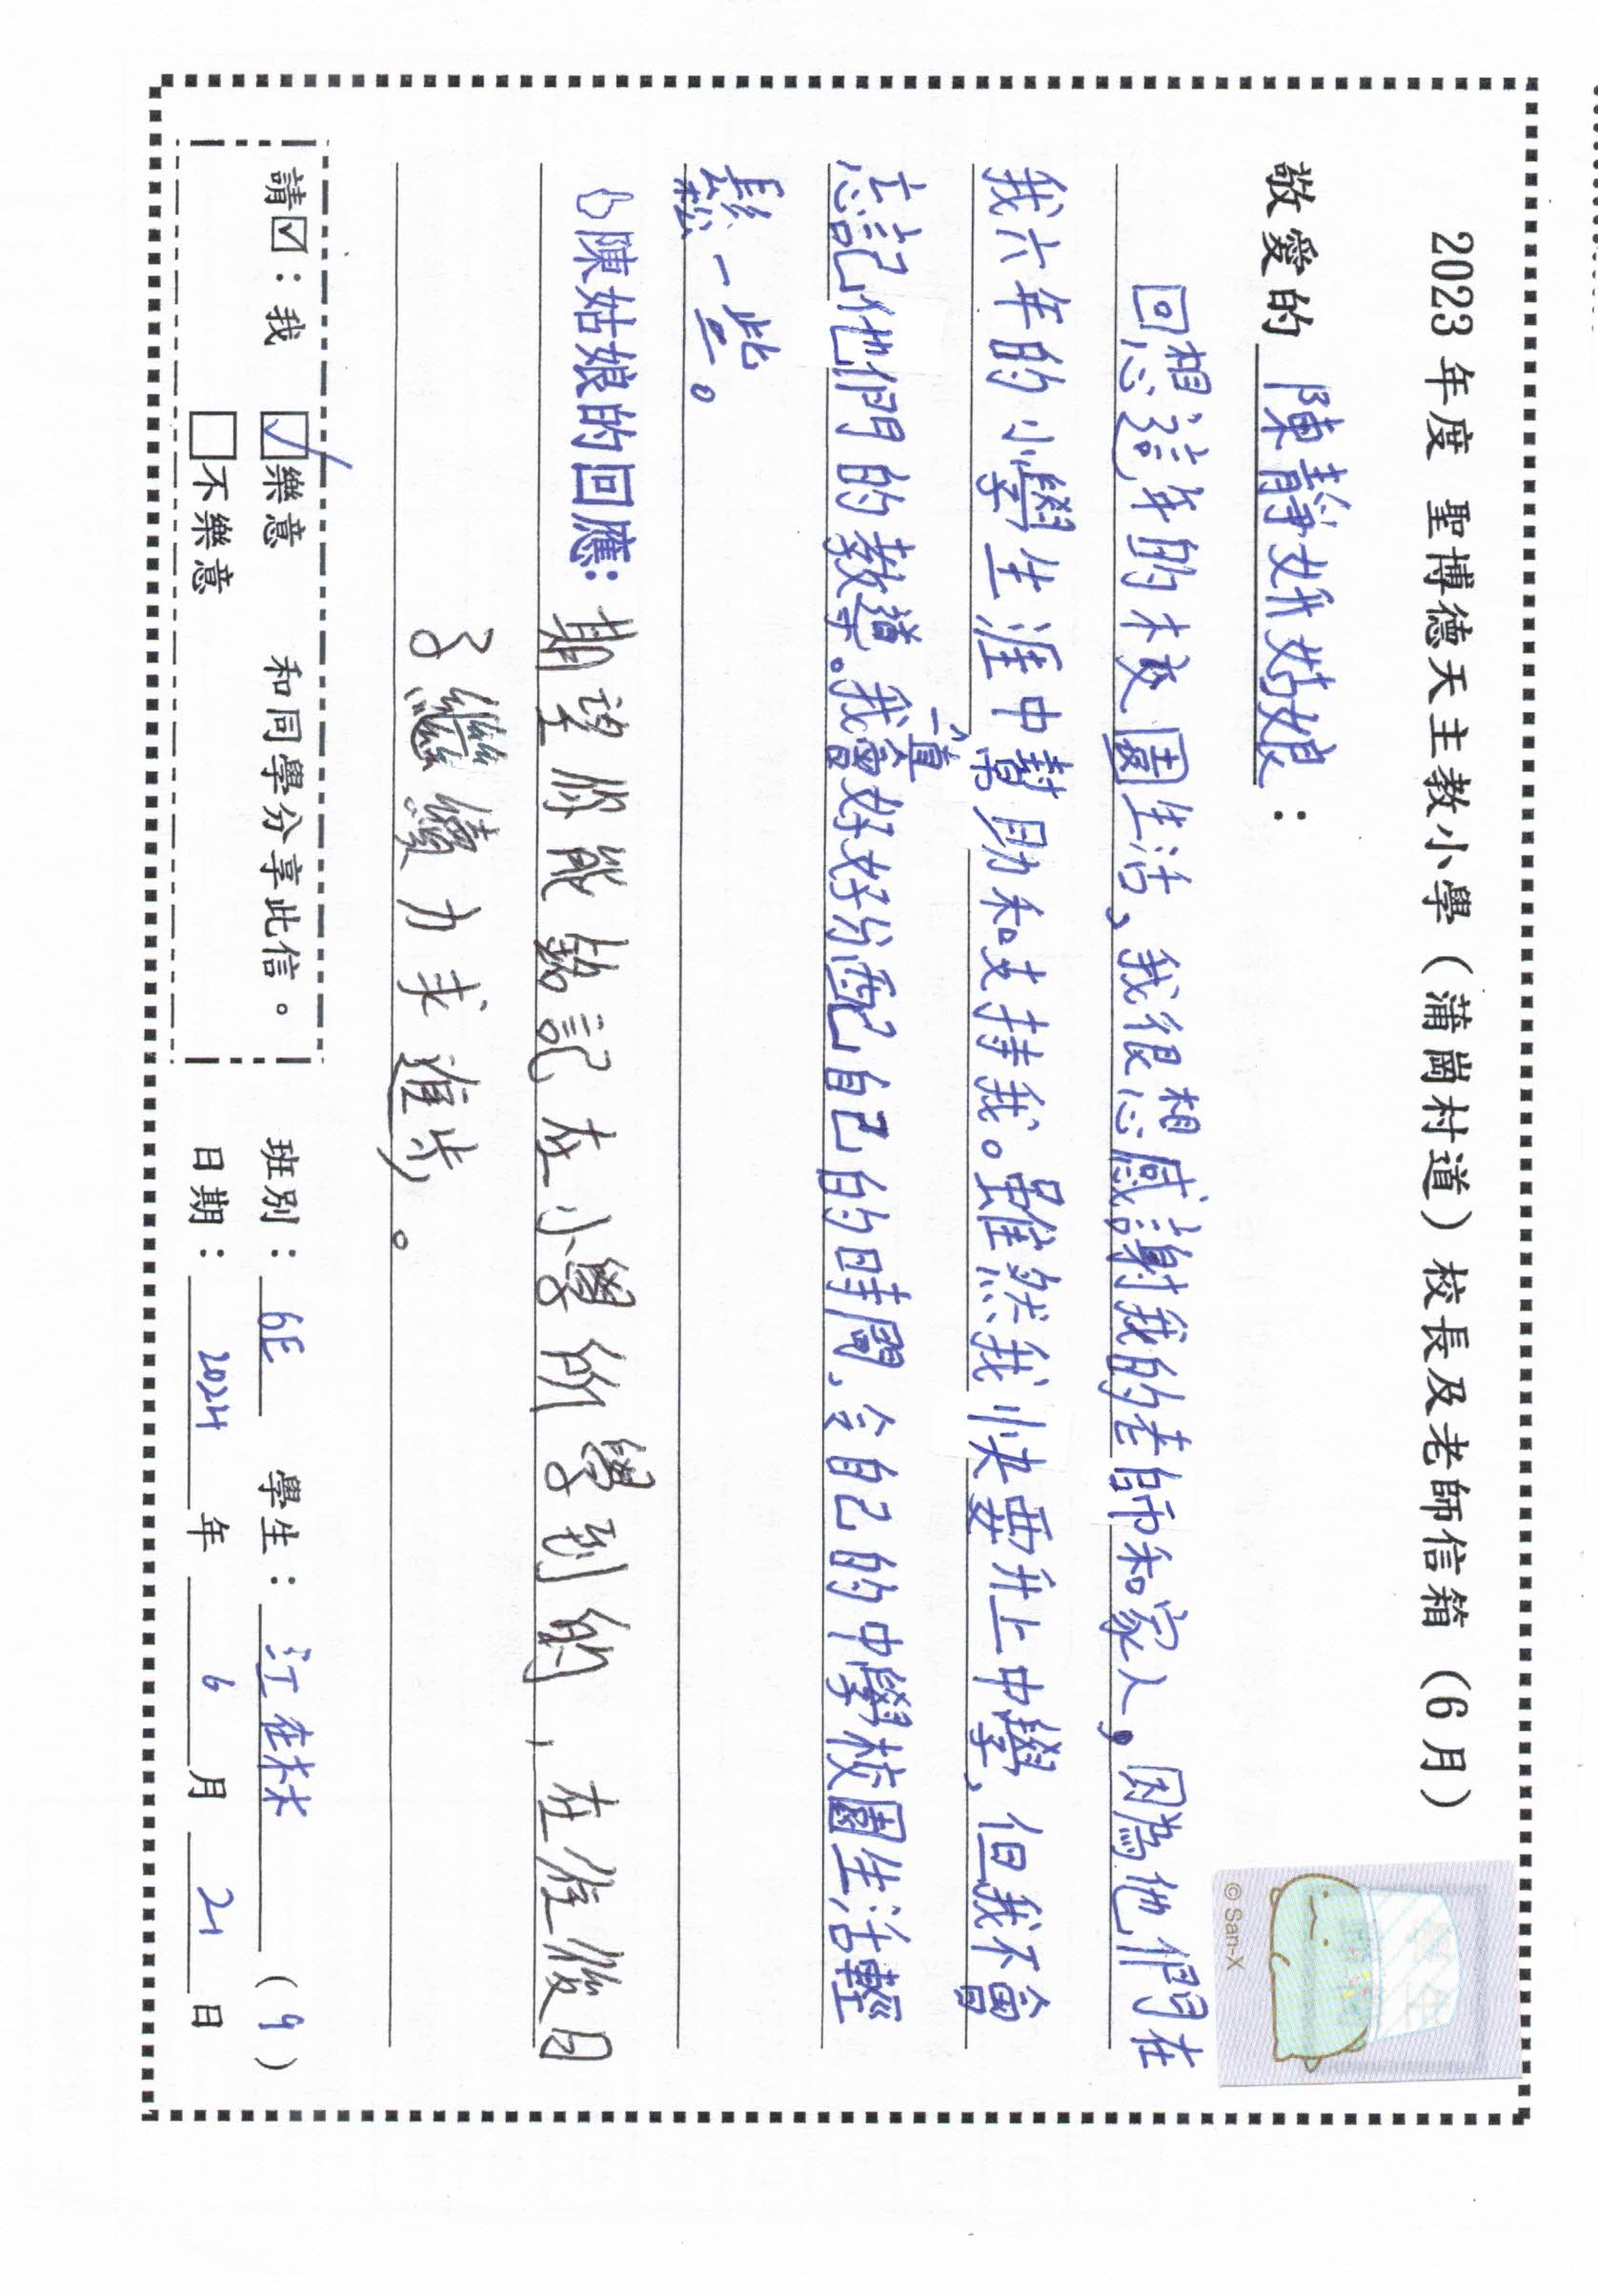 2023 年度 聖博德天主教小學（蒲崗村道）校長及老師信箱（6 月）
敬愛的 陳靜妍姑娘：
回想這年的校園生活，我很想感謝我的老師和家人，因為他們在
我六年的小學生涯中幫助和支持我。雖然我快要升上中學，但我不會
忘記他們的教導。我會一直好好分配自己的時間，令自己的中學校園生活輕
鬆一些。
陳姑娘的回應：期望你能銘記在小學所學到的，在往後日
子繼續力求進步。
請☑：我 ☑樂意 和同學分享此信。
□不樂意
班別：6E 學生：江在林 （9）
日期：2024 年 6 月 21 日
© San-X